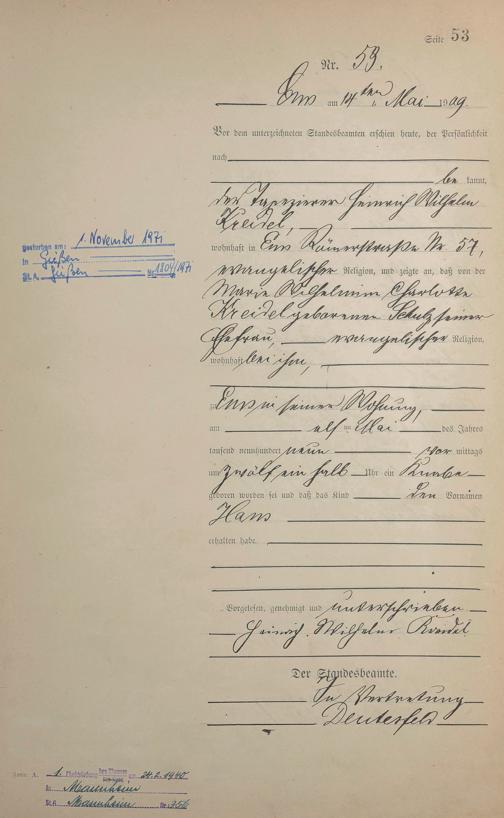 Seite 53
Nr. 53.
Ems am 14ten Mai 1909.
Vor dem unterzeichneten Standesbeamten erschien heute, der Persönlichkeit
nach
be kannt,
der Tapezierer Heinrich Wilhelm
Kreidel,
wohnhaft in Ems Römerstraße Nr 57,
evangelischer Religion, und zeigte an, daß von der
Marie Wilhelmine Charlotte
Kreidel geborenen Schulz seiner
Ehefrau, evangelischer Religion,
wohnhaft bei ihm,
Ems in seiner Wohnung,
am elf ten Mai des Jahres
tausend neunhundert neun vor mittags
um zwölf ein halb Uhr ein Knabe
geboren worden sei und daß das Kind den Vornamen
Hans
erhalten habe.
Vorgelesen, genehmigt und unterschrieben
Heinrich Wilhelm Kreidel
Der Standesbeamte.
In Vertretung
gestorben am: 1. November 1971
in Gießen
St.A. Gießen Nr. 1804/1971
1. Eheschließung des Mannes am 24.2.1940
in Mannheim
St.A. Mannheim Nr. 356